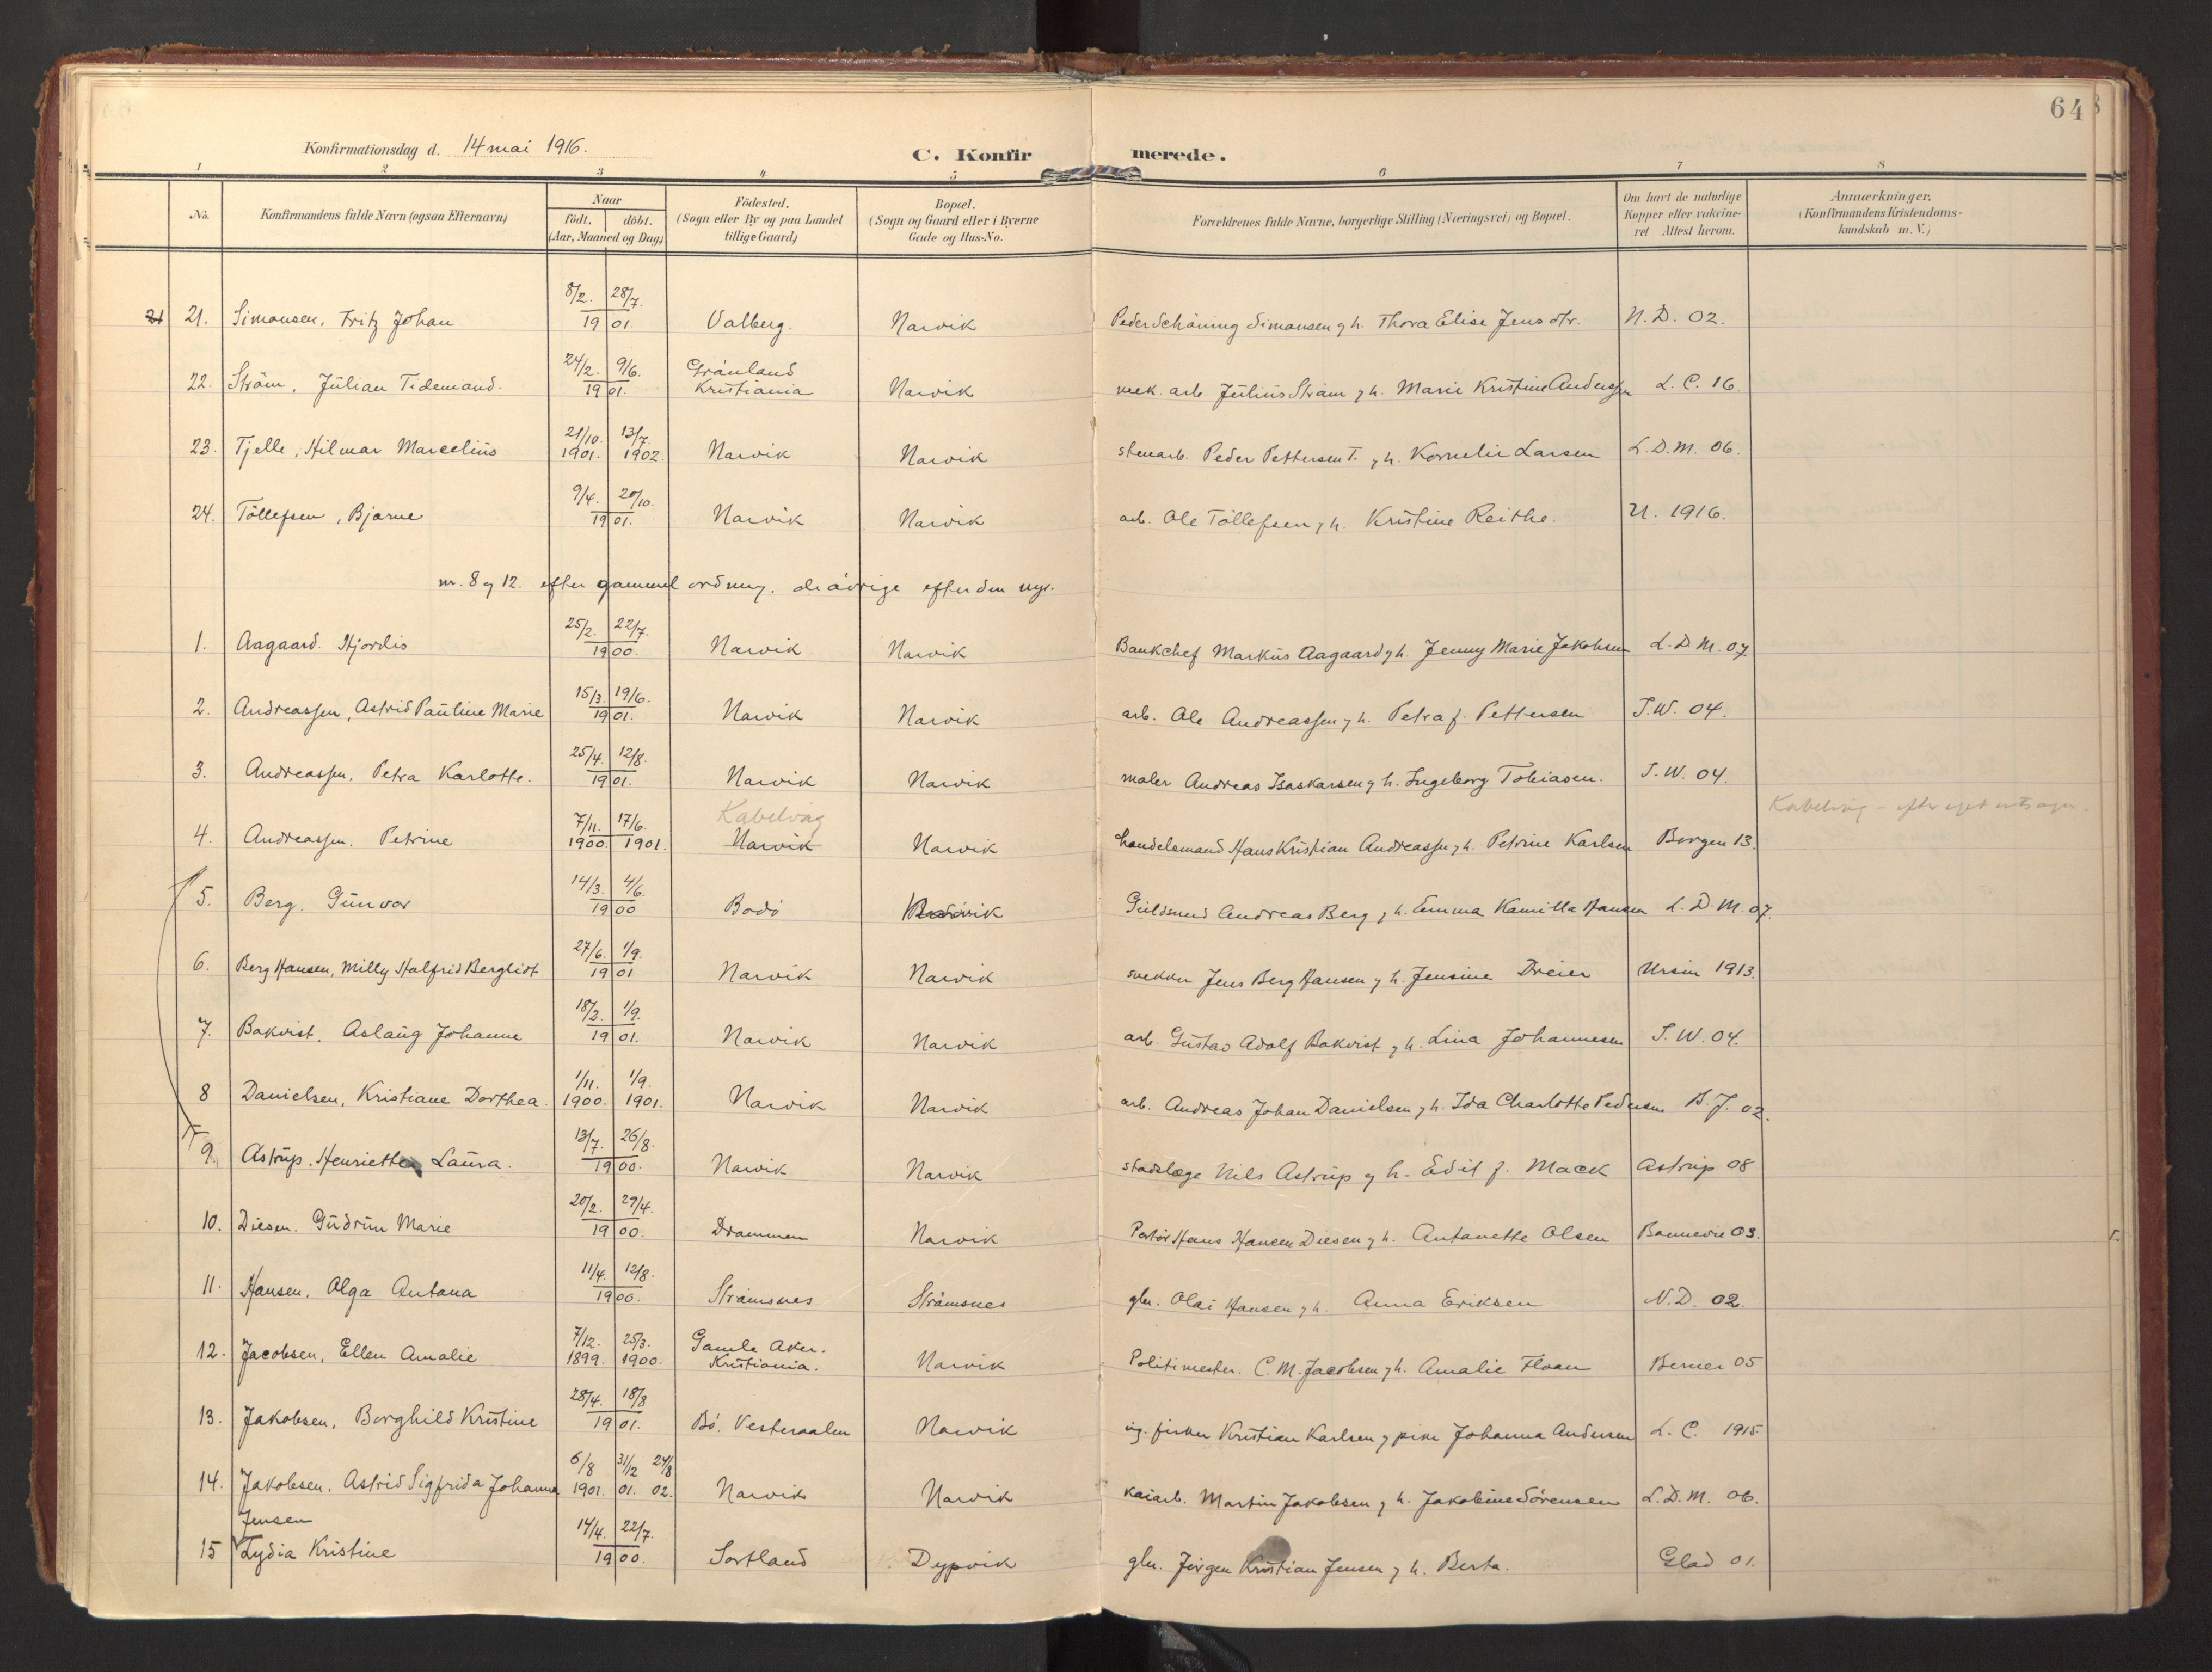 64
Konfirmationsdag d. 14 mai 1916.
C. Konfirmerede.
1 2 3 4 5 6 7 8
No. Konfirmandens fulde Navn (ogsaa Efternavn)
Naar
født. døbt.
(Aar, Maaned og Dag)
Fødested.
(Sogn eller By og paa Landet
tillige Gaard)
Bopæl.
(Sogn og Gaard eller i Byerne
Gade og Hus-No.
Forældrenes fulde Navne, borgerlige Stilling (Næringsvei) og Bopæl.
Om havt de naturlige
Kopper eller vakcine-
ret Attest herom.
Anmærkninger.
(Konfirmandens Kristendoms-
kundskab m. V.)
21 21. Simonsen, Fritz Johan 8/2. 28/7. 1901. Valberg. Narvik Peder Schöning Simonsen g h. Thora Elise Jensdtr. N. D. 02.
22. Ström, Julian Tidemand. 24/2. 9/6. 1901. Grönland Kristiania Narvik mek. arb. Julius Ström g h. Marie Kristine Anderssen L. C. 16.
23. Tjelle, Hilmar Marcelius 21/10. 1901. 13/7. 1902. Narvik Narvik stenarb. Peder Pettersen T. g h. Kornelie Larsen L. D. M. 06.
24. Töllefsen, Bjarne 9/4. 20/10. 1901. Narvik Narvik arb. Ole Töllefsen g h. Kristine Reithe. U. 1916.
nr. 8 og 12. efter gammel ordning, de övrige efter den nye.
1. Aagaard. Hjördis 25/2. 22/7. 1900. Narvik Narvik Bankchef Markus Aagaard g h. Jenny Marie Jakobsen L. D. M. 07.
2. Andreassen, Astrid Pauline Marie 15/3. 19/6. 1901. Narvik Narvik arb. Ole Andreassen g h. Petra f. Pettersen J. W. 04.
3. Andreassen, Petra Karlotte. 25/4. 12/8. 1901. Narvik Narvik maler Andreas Isaskarsen g h. Ingeborg Tobiasen. J. W. 04.
4. Andreassen. Petrine 7/11. 1900. 17/6. 1901. Kabelvåg Narvik Narvik handelsmand Hans Kristian Andreassen g h. Petrine Karlsen Borgen 13. Kabelvåg - efter eget
5. Berg. Gunvor 14/3. 4/6. 1900 Bodö Narvik Guldsmed Andreas Berg g h. Emma Kamilla Hansen L. D. M. 07.
6. Berg Hansen, Milly Halfrid Bergliot 27/6. 1/9. 1901 Narvik Narvik snekker Jens Berg Hansen g h. Jensine Dreier Ursin 1913.
7. Bakvist, Aslaug Johanne 18/2. 1/9. 1901. Narvik Narvik arb. Gustav Adolf Bakvist g h. Lina Johannesen J. W. 04.
8 Danielsen, Kristiane Dorthea. 1/11. 1900. 1/9. 1901. Narvik Narvik arb. Andreas Johan Danielsen g h. Ida Charlotte Pedersen B. J. 02.
9. Astrup. Henriette Laura. 13/7. 26/8. 1900. Narvik Narvik stadslæge Nils Astrup g h. Edit f. Mack Astrup 08
10. Diesen. Gudrun Marie 20/2. 29/4. 1900. Drammen Narvik Portör Hans Hansen Diesen g h. Antonette Olsen Bonnevie 03.
11. Hansen, Olga Antona 11/4. 12/8. 1900. Strömsnes Strömsnes gbr. Olai Hansen g h. Anna Eriksen N. D. 02.
12. Jacobsen, Ellen Amalie 7/12. 1899. 25/3. 1900. Gamle Aker. Kristiania. Narvik Politimester. C. M. Jacobsen g h. Amalie Floan Berner 05
13. Jakobsen, Borghild Kristine 28/4. 18/8 1901. Bö. Vesteraalen Narvik ug. fisker Kristian Karlsen g pike Johanna Andersen L. C. 1915
14. Jakobsen. Astrid Sigfrida Johanna 6/8 1901. 31/2 01. 24/8 02. Narvik Narvik kaiarb. Martin Jakobsen g h. Jakobine Sörensen L. D. M. 06.
15 Jensen Lydia Kristine 14/4. 22/7. 1900. Sortland Dypvik gbr. Jörgen Kristian Jensen g h. Berta. Glad 01.